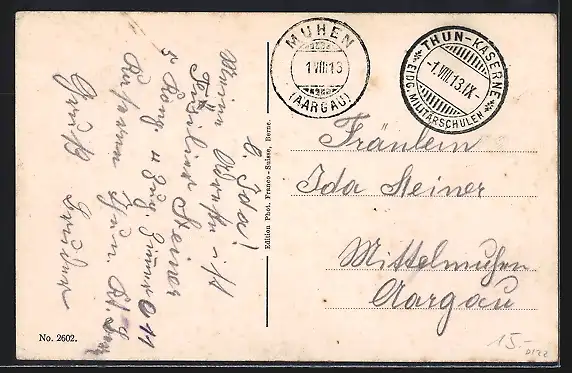 MUHEN
1 VIII 13
(AARGAU)
THUN-KASERNE
-1.VIII.13.IX-
EIDG. MILITÄRSCHULEN
Fräulein
Ida Steiner
Mittelmuhen
Aargau
L. Ida!
Meine Adresse ist
Füsilier Steiner
5 Komp. II Zug. Zimmer 011
Kaserne Thun
Gruß
Edition Phot. Franco-Suisse, Berne.
No. 2602.
15.-